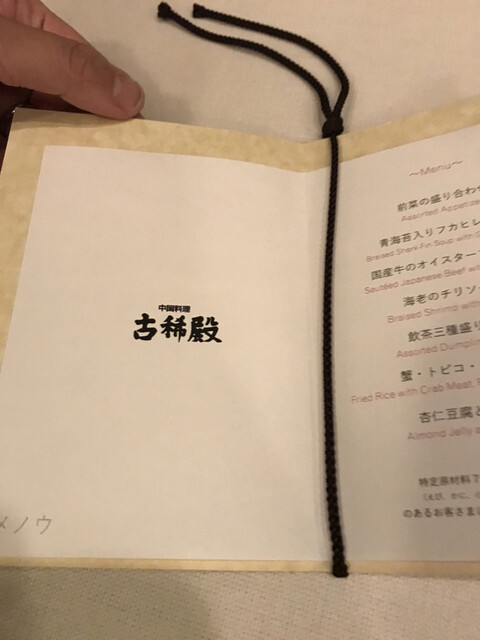 中国料理
古稀殿
メノウ
～Menu～
前菜の盛り合わ
Assorted Appetize
青海苔入りフカヒレ
Braised Shark-Fin Soup with
国産牛のオイスター
Sautéed Japanese Beef with
海老のチリソー
Braised Shrimp with
飲茶三種盛り
Assorted Dumplin
蟹・トビコ・
Fried Rice with Crab Meat,
杏仁豆腐と
Almond Jelly a
特定原材料7
（えび、かに、
のあるお客さまは